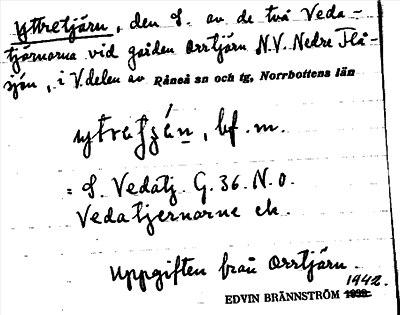 Yttretjärn, den S. av de två Veda-
tjärnarna vid gården Orrtjärn N.V. Nedre Flå-
sjön, i V. delen av Råneå sn och tg, Norrbottens län
ytratján, bf. m.
= S. Vedatj. G. 36. N. O.
Vedatjernarne ek.
Uppgiften från Orrtjärn.
1942.
EDVIN BRÄNNSTRÖM 1939.